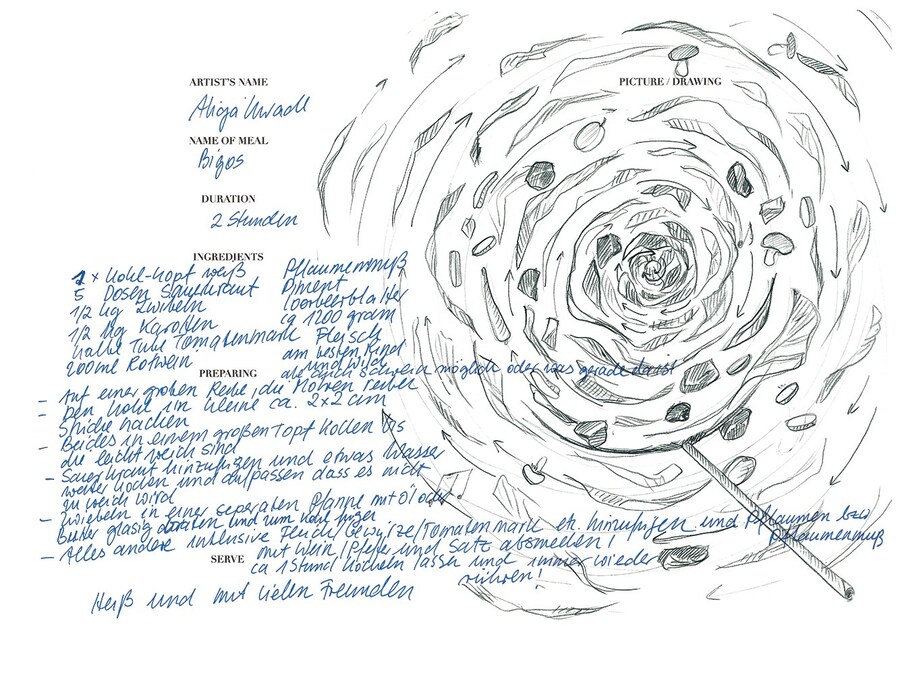 ARTIST'S NAME
PICTURE / DRAWING
Alicja Kwade
NAME OF MEAL
Bigos
DURATION
2 Stunden
INGREDIENTS
1 x Kohl-Kopf weiß
5 Dosen Sauerkraut
1/2 kg Zwibeln
1/2 kg Karotten
halbe Tube Tomatenmark
200ml Rotwein
Pflaumenmuß
Piment
Loorbeerblätter
ca 1200 gram
Fleisch
am besten Rind
und Wild
aber auch Schwein möglich oder was gerade da ist
PREPARING
- Auf einer groben Reibe, die Möhren reiben
- Den Kohl in kleine ca. 2x2 cm
Stücke hacken
- Beides in einem großen Topf kochen bis
die leicht weich sind
- Sauerkraut hinzufügen und etwas Wasser
weiter kochen und aufpassen dass es nicht
zu weich wird
- Zwiebeln in einer separaten Pfanne mit Öl oder
Butter glasig braten und zum Kohl fügen
- Alles andere inklusive Fleisch/Gewürze/Tomatenmark etc. hinzufügen und Pflaumen bzw
Pflaumenmuß
SERVE
mit Wein/Pfeffer und Salz abschmecken!
ca 1 Stund köcheln lassen und immer wieder
rühren!
Heiß und mit vielen Freunden